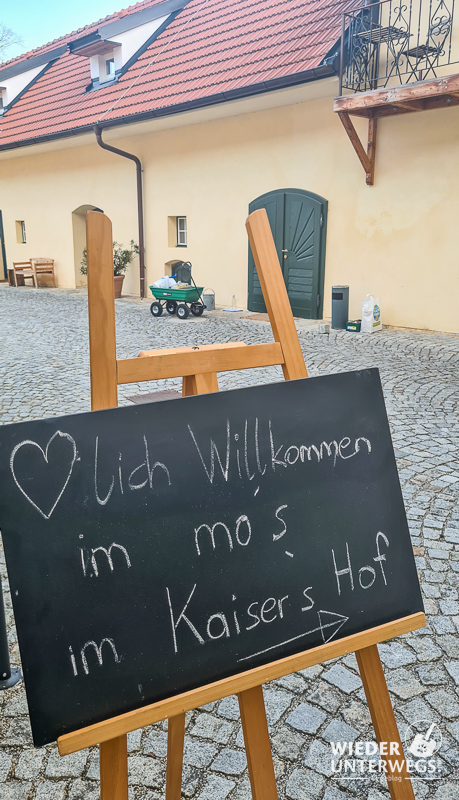 ♡lich Willkommen
im mo's
im Kaiser's Hof
WIEDER
UNTERWEGS!